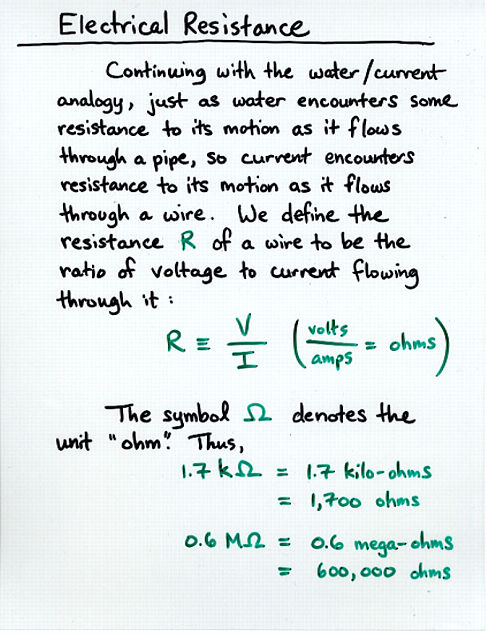 Electrical Resistance
Continuing with the water/current
analogy, just as water encounters some
resistance to its motion as it flows
through a pipe, so current encounters
resistance to its motion as it flows
through a wire. We define the
resistance R of a wire to be the
ratio of voltage to current flowing
through it:
R ≡ V/I (volts/amps = ohms)
The symbol Ω denotes the
unit "ohm". Thus,
1.7 kΩ = 1.7 kilo-ohms
= 1,700 ohms
0.6 MΩ = 0.6 mega-ohms
= 600,000 ohms